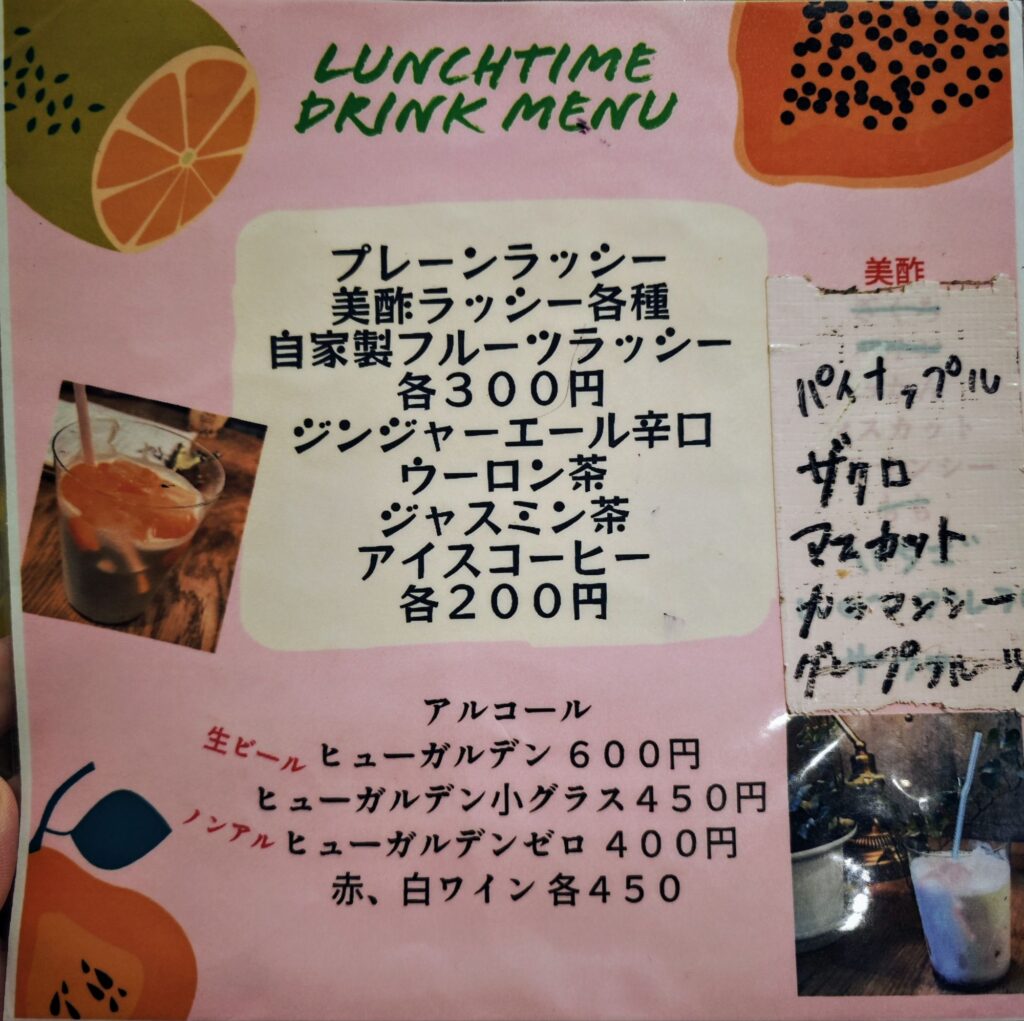 LUNCHTIME
DRINK MENU
プレーンラッシー
美酢ラッシー各種
自家製フルーツラッシー
各３００円
ジンジャーエール辛口
ウーロン茶
ジャスミン茶
アイスコーヒー
各２００円
美酢
パイナップル
ザクロ
マスカット
カラマンシー
グレープフルーツ
アルコール
生ビール ヒューガルデン ６００円
ヒューガルデン小グラス４５０円
ノンアル ヒューガルデンゼロ ４００円
赤、白ワイン 各４５０